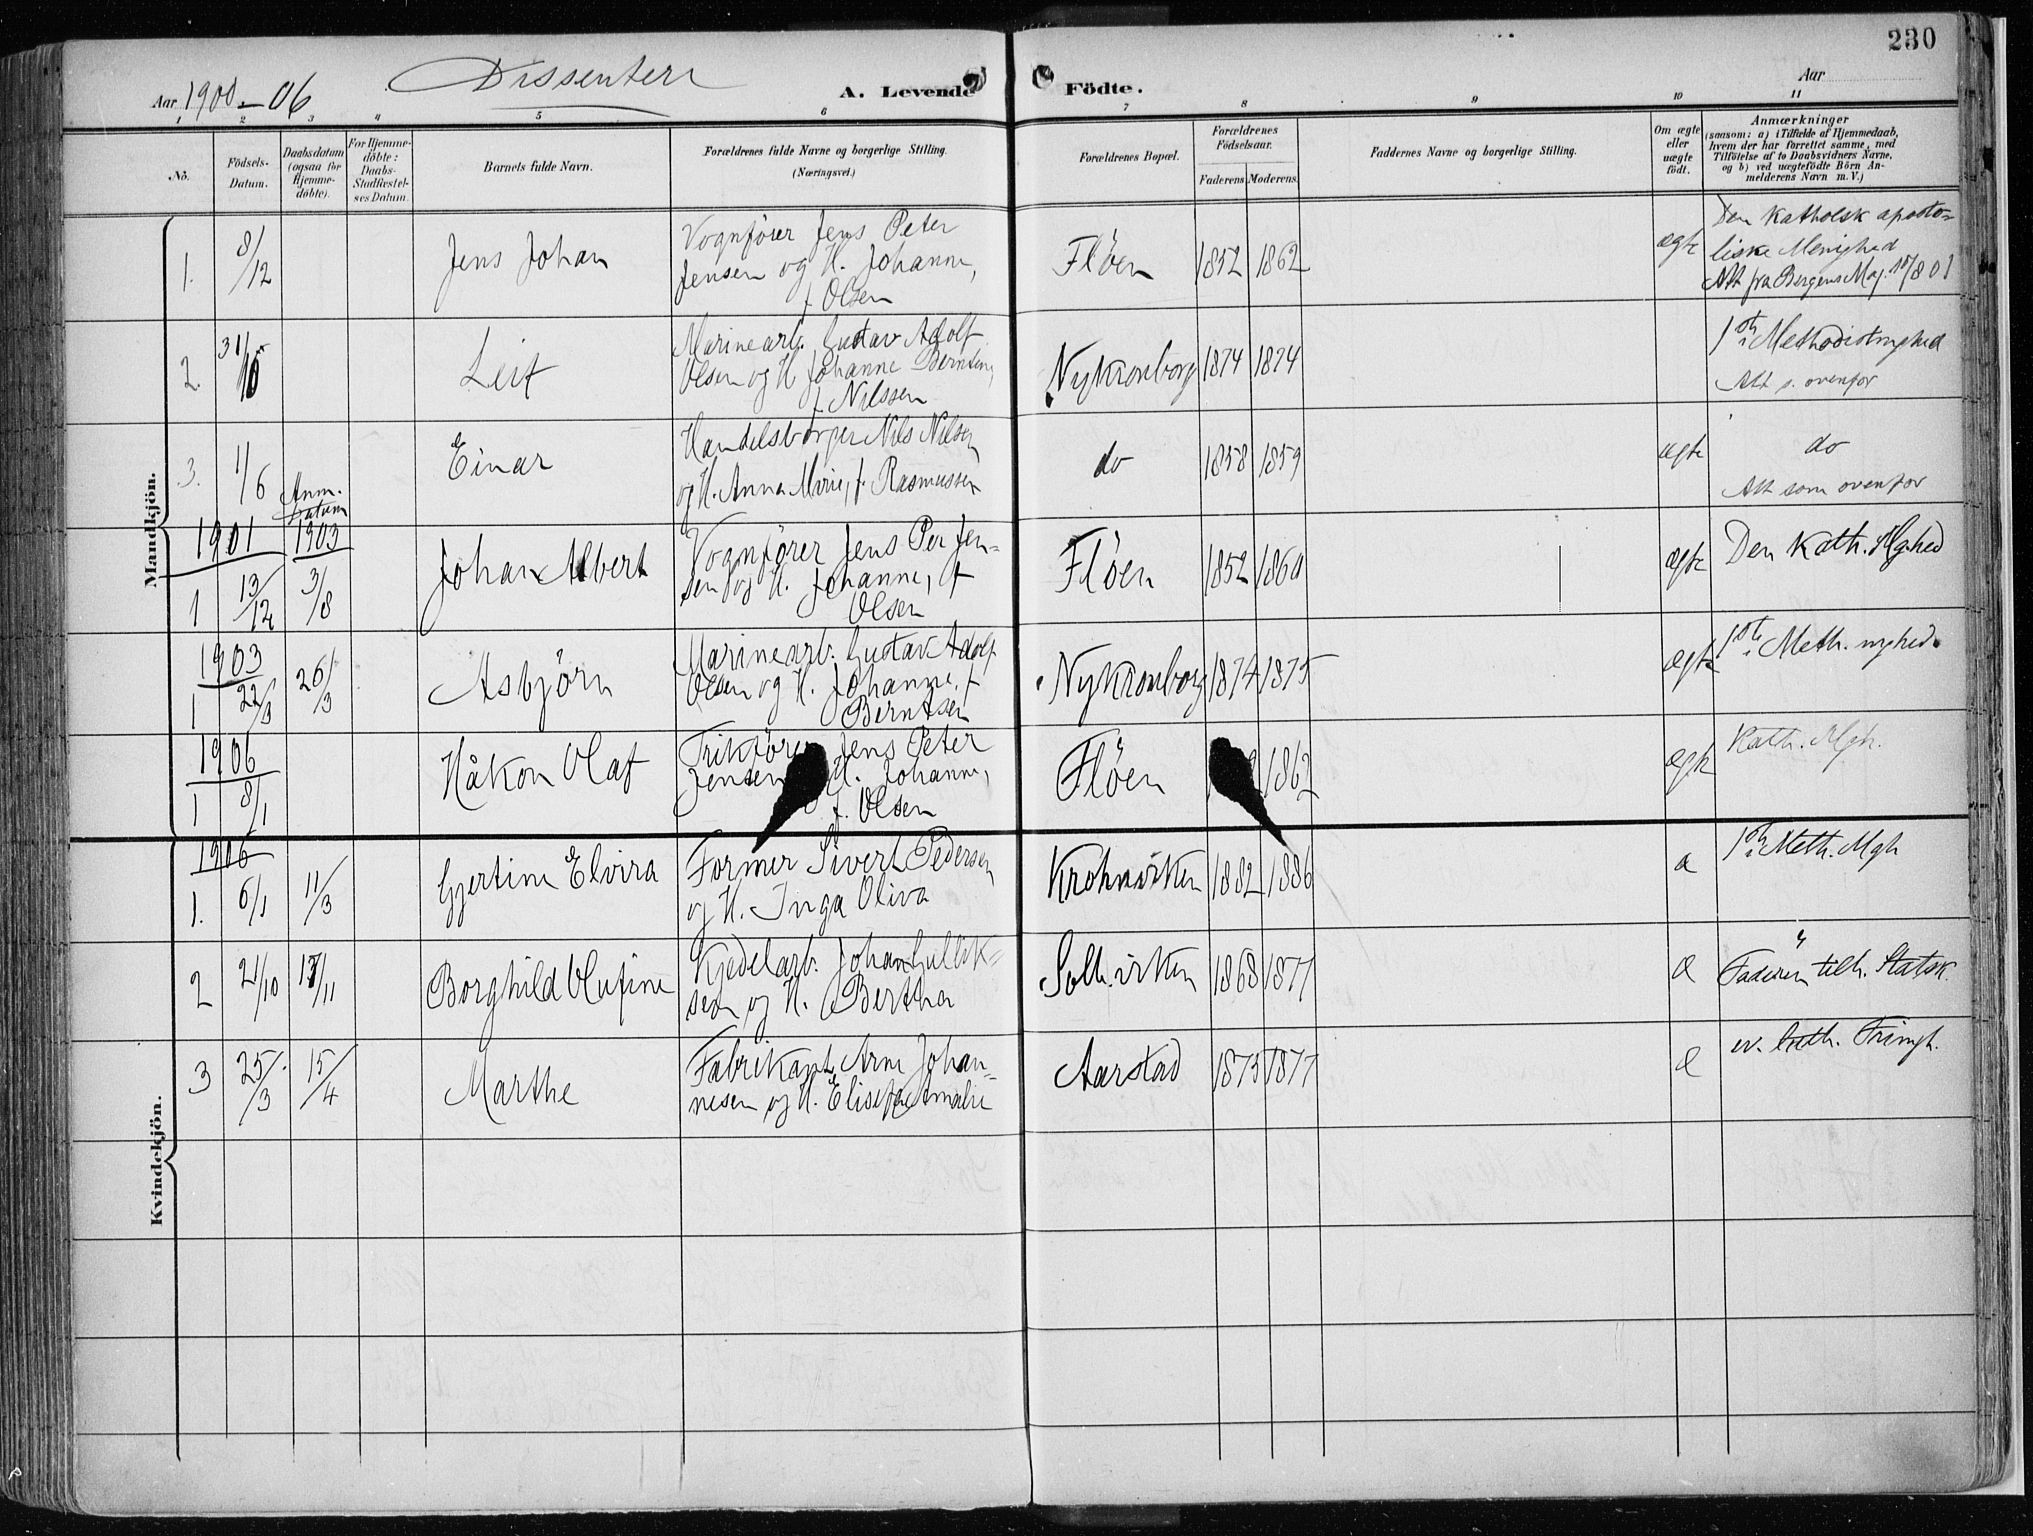 230
Dissentere
Aar 1900-06
A. Levende Födte.
Aar
1 2 3 4 5 6 7 8 9 10 11
No.
Födsels-Datum.
Daabsdatum (ogsaa for Hjemme-döbte).
For Hjemme-döbte: Daabs-Stadfæstel-ses Datum.
Barnets fulde Navn.
Forældrenes fulde Navne og borgerlige Stilling. (Næringsvei.)
Forældrenes Bopæl.
Forældrenes Födselsaar.
Faderens. Moderens.
Faddernes Navne og borgerlige Stilling.
Om ægte eller uægte födt.
Anmærkninger
(saasom: a) i Tilfælde af Hjemmedaab, hvem der har forrettet samme, med Tilföielse af to Daabsvidners Navne, og b) ved uægtefödte Börn An-melderens Navn m. V.)
Mandkjön.
1. 8/12
Jens Johan
Vognfører Jens Peter
Jensen og H. Johanne,
f. Olsen
Fløen
1852 1862
ægte
Den katholsk aposto-
liske Menighed
Att fra Bergens Mag. 10/8 01
2. 31/10
Leif
Marinearb. Gustav Adolf
Olsen og H Johanne Berntine,
f. Nilssen
Nykronborg
1874 1874
1ste Methodistmghed
Att s. ovenfor
3. 1/6
Einar
Handelsborger Nils Nilsen
og H. Anna Marie, f. Rasmussen
do
1858 1859
ægte
do
Att som ovenfor
Anm. datum
1901 1903
1 13/12 3/8
Johan Albert
Vognfører Jens Per Jen-
sen og H. Johanne, f
Olsen
Fløen
1852 1860
ægte
Den Kath. Mghed
1903
1 22/3 26/3
Asbjörn
Marinearb. Gustav Adolf
Olsen og H. Johanne f
Berntsen
Nykronborg
1874 1875
ægte
1ste Meth. mghed.
1906
1 8/1
Håkon Olaf
Jens Peter
Jensen H. Johanne,
f. Olsen
Fløen
1862
ægte
Kath. Mgh.
Kvindekjön.
1906
1. 6/1 11/3
Gjertine Elvira
Former Sivert Pedersen
og H. Inga Oliva
Krohnviken
1882 1886
æ
1ste Meth. Mgh
2 21/10 17/11
Borghild Olufine
Kjedelarb. Johan Gullik-
sen og H. Bertha
Solh.viken
1868 1877
æ
Faderen tilh. Statsk.
3 25/3 15/4
Marthe
Fabrikant Arne Johan-
nesen og H. Elisa Amalie
Aarstad
1873 1877
æ
ev. luth. Frimgh.